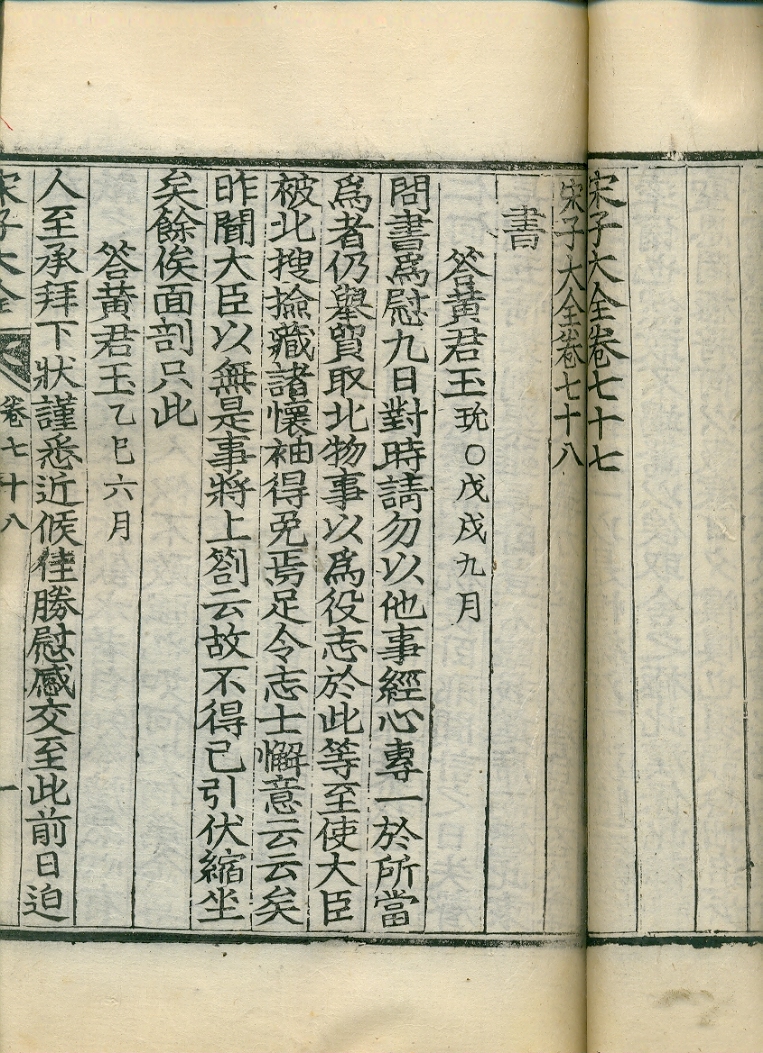 宋子大全卷七十七
宋子大全卷七十八
書
答黄君玉玧○戊戌九月
問書爲慰九日對時請勿以他事經心專一於所當
爲者仍擧貿取北物事以爲役志於此等至使大臣
被北搜撿藏諸懷袖得免焉足令志士懈意云云矣
昨聞大臣以無是事將上劄云故不得已引伏縮坐
矣餘俟面剖只此
答黄君玉乙巳六月
人至承拜下狀謹悉近候佳勝慰感交至此前日迫
宋子大全
卷七十八
一